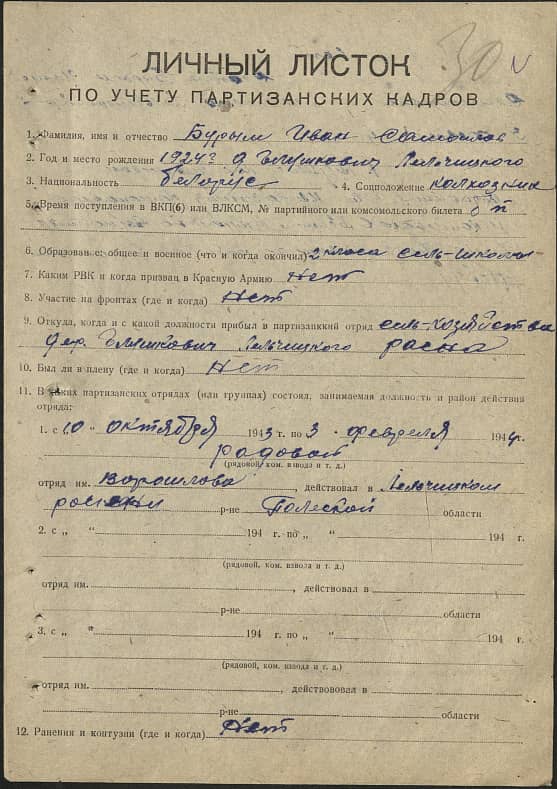 30
ЛИЧНЫЙ ЛИСТОК
ПО УЧЕТУ ПАРТИЗАНСКИХ КАДРОВ
1. Фамилия, имя и отчество Бурым Иван Самойлов
2. Год и место рождения 1924 г. д Лельчицкого
3. Национальность белорус 4. Соцположение колхозник
5. Время поступления в ВКП(б) или ВЛКСМ, № партийного или комсомольского билета б п
6. Образование: общее и военное (что и когда окончил) 2 класа сель-школы
7. Каким РВК и когда призван в Красную Армию Нет
8. Участие на фронтах (где и когда) Нет
9. Откуда, когда и с какой должности прибыл в партизанкий отряд сель-хозяйства
дер. Лельчицкого
10. Был ли в плену (где и когда) Нет
11. В каких партизанских отрядах (или группах) состоял, занимаемая должность и район действия
отряда:
1. с „10 " октября 1943 г. по 3 февраля 1944 г.
радовой
(рядовой, ком. взвода и т. д.)
отряд им. Ворошлова, действовал в Лельчицком
р-не Полеской области
2. с „ " 194 г. по „ " 194 г.
(рядовой, ком. взвода и т. д.)
отряд им. , действовал в
р-не области
3. с „ " 194 г. по „ " 194 г.
(рядовой, ком. взвода и т. д.)
отряд им. , действововал в
р-не области
12. Ранения и контузии (где и когда) Нет